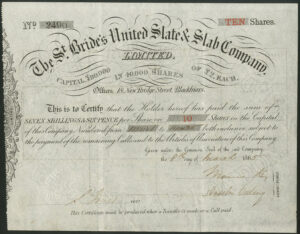 No. 2490
TEN Shares.
The St. Bride's United Slate & Slab Company,
LIMITED.
CAPITAL £20,000 IN 10,000 SHARES OF £2, EACH.
Offices, 18, New Bridge Street, Blackfriars.
This is to Certify that the Holder hereof has paid the sum of
SEVEN SHILLINGS & SIX PENCE per Share, on 10 Shares in the Capital
of this Company, Numbered from to both inclusive, subject to
the payment of the remaining Calls and to the Articles of Association of this Company.
Given under the Common Seal of the said Company,
the day of March
This Certificate must be produced when a Transfer is made or a Call paid.